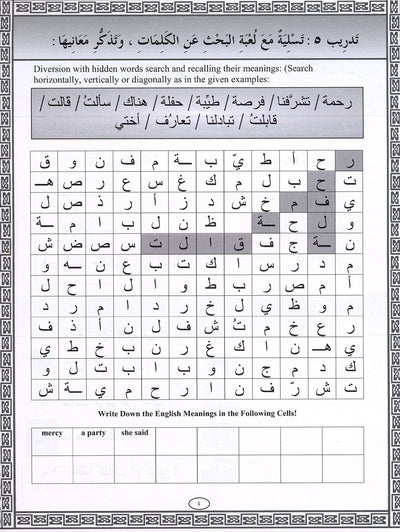 تَدرِيب ٥ : تَسْلِيَةٌ مَعَ لُعْبَةِ البَحْثِ عَنِ الكَلِمَاتِ ، وَتَذَكُّرِ مَعَانِيهَا :
Diversion with hidden words search and recalling their meanings: (Search
horizontally, vertically or diagonally as in the given examples:
رحمة / تشرَّفنا / فرصة / طيِّبة / حفلة / هناك / سألتُ / قالت /
قابلتُ / تبادلنا / تعارُف / أختي
ر ح أ ط يّ ب ـة م ف ن و ق
ت ح ب ل م ك غ س ع ر ص هـ
ي ف م خ ش د ز أ ر ذ ص ل
و ل ح ـة ظ ن ل ب ا م ـة
ن ـة ج ف ق ا ل ت س ص ض ش
م د ر س ا ك ت ب ع ن ـه و
أ م ص ر ب ط و ا ل ا ح ل
م و ظ ي ل خ ر د ا م ر د
ر ع خ م تُ ش ف ل ن أ ذ ف
ي هـ ن ا ك غ ر ن ب خ ط ي
ك د م ج ن و ب ا ب ت ل و
ت ش رّ ف ن ا ر ح م ي ـة ش
Write Down the English Meanings in the Following Cells!
mercy a party she said